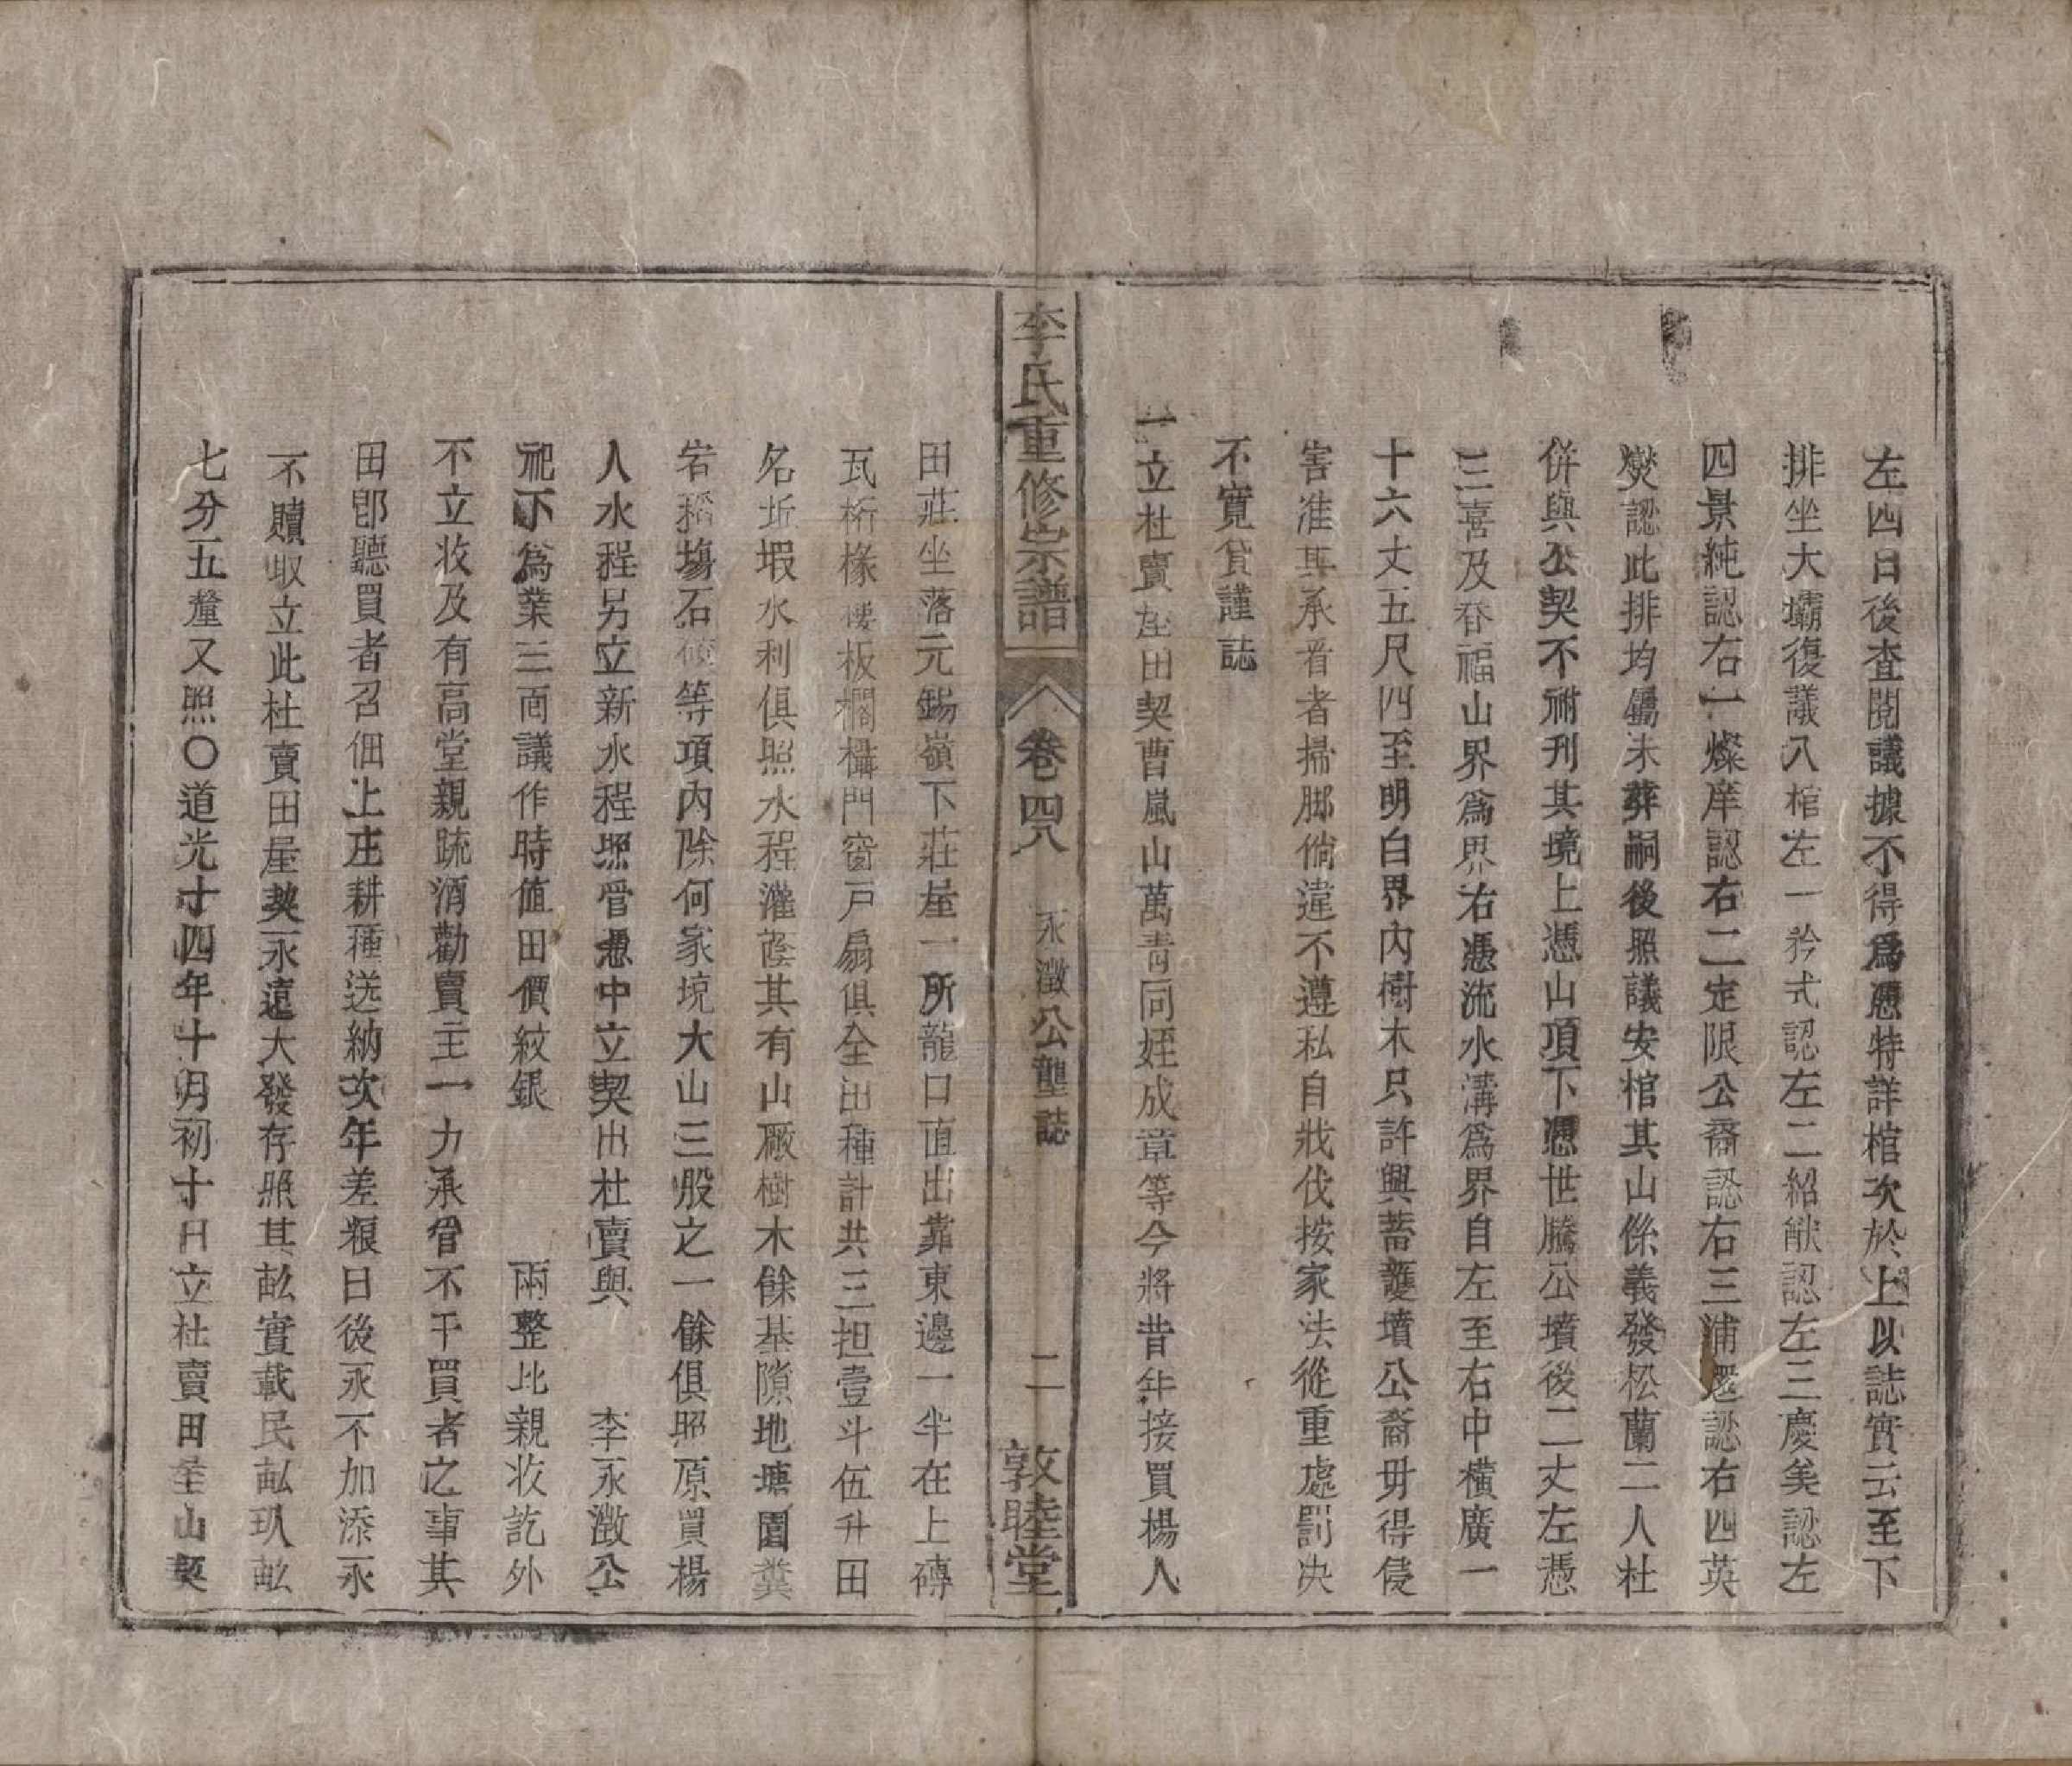 左四日後查閱議據不得爲憑特詳棺次於上以誌實云至下
排坐大壩復議入棺左一矜式認左二紹猷認左三慶矣認左
四景純認右一燦庠認右二定限公裔認右三浦還認右四英
燮認此排均屬未葬嗣後照議安棺其山係義發松蘭二人杜
併與公契不祔刊其境上憑山項下憑世騰公墳後二丈左憑
三喜及春福山界爲界右憑流水溝爲界自左至右中橫廣一
十六丈五尺四至明白界內樹木只許興蓄護墳公裔毋得侵
害准其承管者掃脚倘違不遵私自戕伐按家法從重處罰决
不寬貸謹誌
一立杜賣庄田契曹嵐山萬青同姪成章等今將昔年接買楊人
李氏重修宗譜 卷四八 永澂公塋誌 二 敦睦堂
田莊坐落元錫嶺下莊屋一所龍口直出靠東邊一半在上磚
瓦桁椽樓板櫊櫃門窗戶扇俱全出種計共三担壹斗伍升田
名坵塅水利俱照水程灌蔭其有山廠樹木餘基隙地塘園糞
窖稻塲石磙等項內除何家境大山三股之一餘俱照原買楊
人水程另立新水程照管憑中立契出杜賣與 李永澂公
祀下爲業三面議作時值田價紋銀 兩整比親收訖外
不立收及有高堂親疏酒勸賣主一力承管不干買者之事其
田卽聽買者召佃上庄耕種送納次年差粮日後永不加添永
不贖取立此杜賣田屋契永遠大發存照其畝實載民畝玖畝
七分五釐又照〇道光十四年十月初十日立杜賣田莊山契